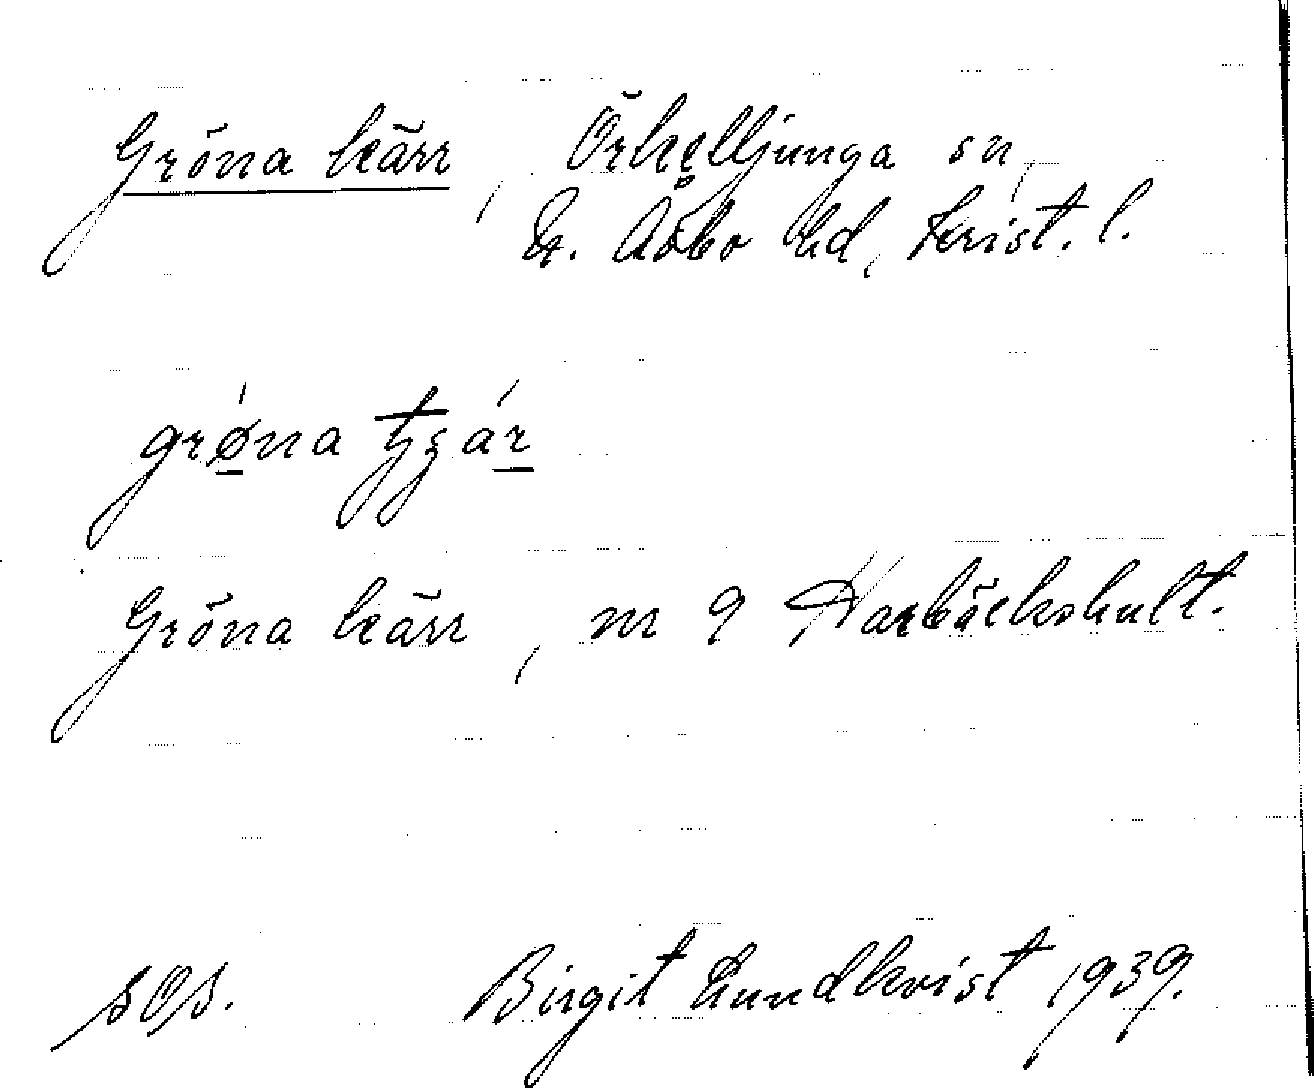 Gröna kärr, Örkelljunga sn,
N. Åsbo hd, Krist. l.
grǿ̲na tʒá̠r
Gröna kärr, nr 9 Harbäckshult.
sOs. Birgit Lundkvist 1939.